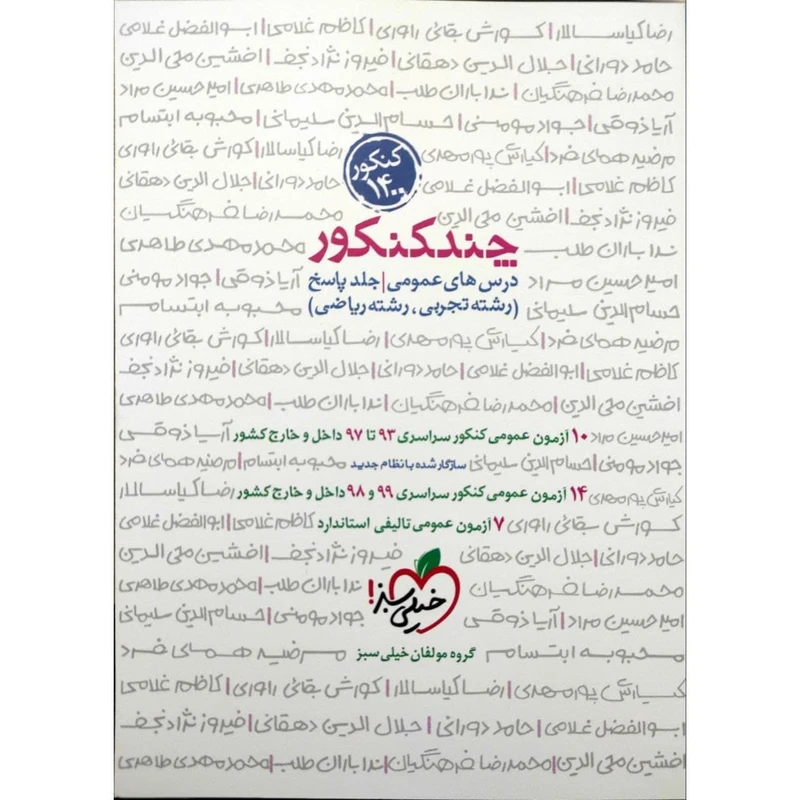 رضا کیاسالار | کورش بقائی راوری | کاظم غلامی | ابوالفضل غلامی
حامد دورانی | جلال الدین دهقانی | فیروز نژادنجف | افشین محی الدین
محمدرضا فرهنگیان | ندا باران طلب | محمدمهدی طاهری | امیرحسین مراد
آریا ذوقی | جواد مومنی | حسام الدین سلیمانی | محبوبه ابتسام
مرضیه همای فرد | کیارش پورمهدی رضا کیاسالار | کورش بقائی راوری
کنکور
۱۴۰۰
کاظم غلامی | ابوالفضل غلامی حامد دورانی | جلال الدین دهقانی
فیروز نژادنجف | افشین محی الدین محمدرضا فرهنگیان
چند کنکور
ندا باران طلب محمدمهدی طاهری
امیرحسین مراد درس های عمومی | جلد پاسخ آریا ذوقی | جواد مومنی
حسام الدین سلیمانی (رشته تجربی، رشته ریاضی) محبوبه ابتسام
مرضیه همای فرد | کیارش پورمهدی | رضا کیاسالار | کورش بقائی راوری
کاظم غلامی | ابوالفضل غلامی | حامد دورانی | جلال الدین دهقانی | فیروز نژادنجف
افشین محی الدین | محمدرضا فرهنگیان | ندا باران طلب | محمدمهدی طاهری
امیرحسین مراد ۱۰ آزمون عمومی کنکور سراسری ۹۳ تا ۹۷ داخل و خارج کشور آریا ذوقی
جواد مومنی | حسام الدین سلیمانی سازگار شده با نظام جدید محبوبه ابتسام | مرضیه همای فرد
کیارش پورمهدی ۱۴ آزمون عمومی کنکور سراسری ۹۹ و ۹۸ داخل و خارج کشور رضا کیاسالار
کورش بقائی راوری ۷ آزمون عمومی تالیفی استاندارد کاظم غلامی | ابوالفضل غلامی
حامد دورانی | جلال الدین دهقانی فیروز نژادنجف | افشین محی الدین
محمدرضا فرهنگیان خیلی سبز! ندا باران طلب | محمدمهدی طاهری
امیرحسین مراد | آریا ذوقی جواد مومنی | حسام الدین سلیمانی
محبوبه ابتسام گروه مولفان خیلی سبز مرضیه همای فرد
کیارش پورمهدی | رضا کیاسالار | کورش بقائی راوری | کاظم غلامی
ابوالفضل غلامی | حامد دورانی | جلال الدین دهقانی | فیروز نژادنجف
افشین محی الدین | محمدرضا فرهنگیان | ندا باران طلب | محمدمهدی طاهری